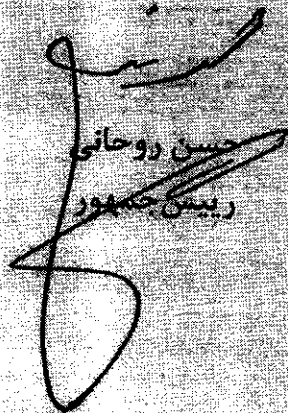 حسن روحانی
رییس جمهور